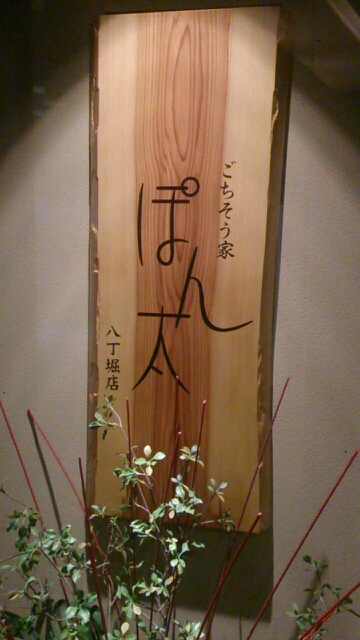 ごちそう家
ぽん太
八丁堀店